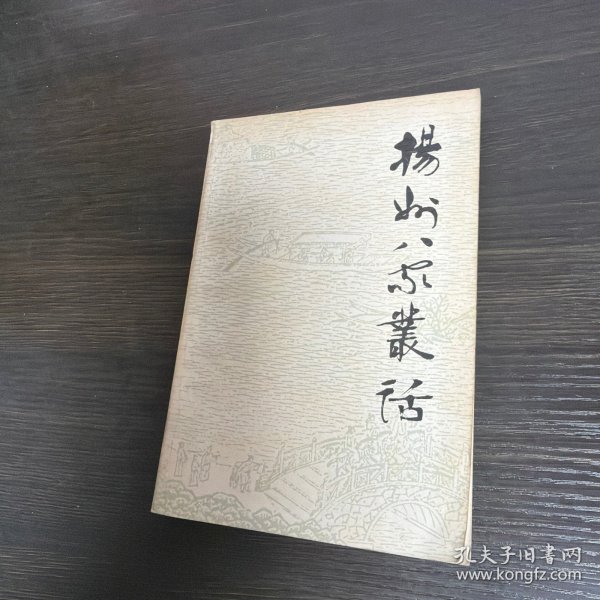 揚州八家叢話
孔夫子旧書网
www.kongfz.com